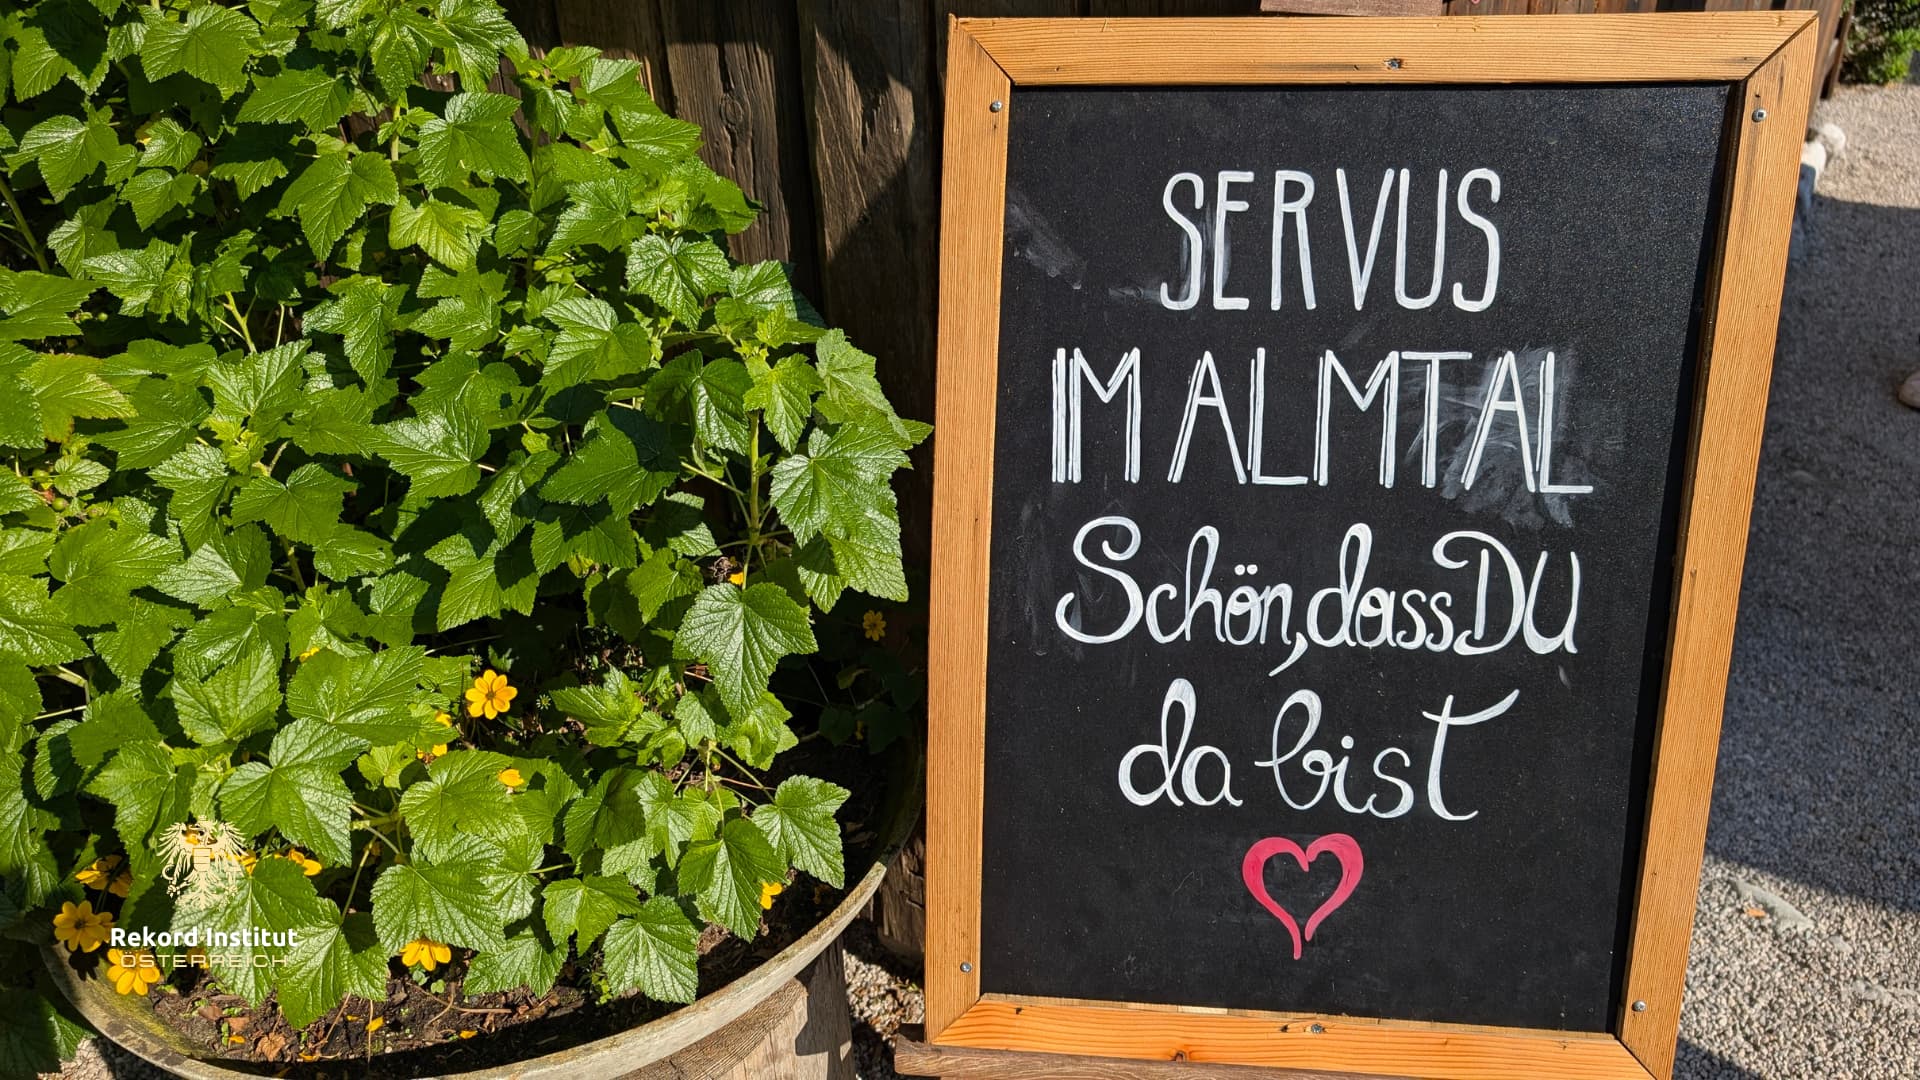 SERVUS
IM ALMTAL
Schön, dass DU
da bist
Rekord Institut
ÖSTERREICH